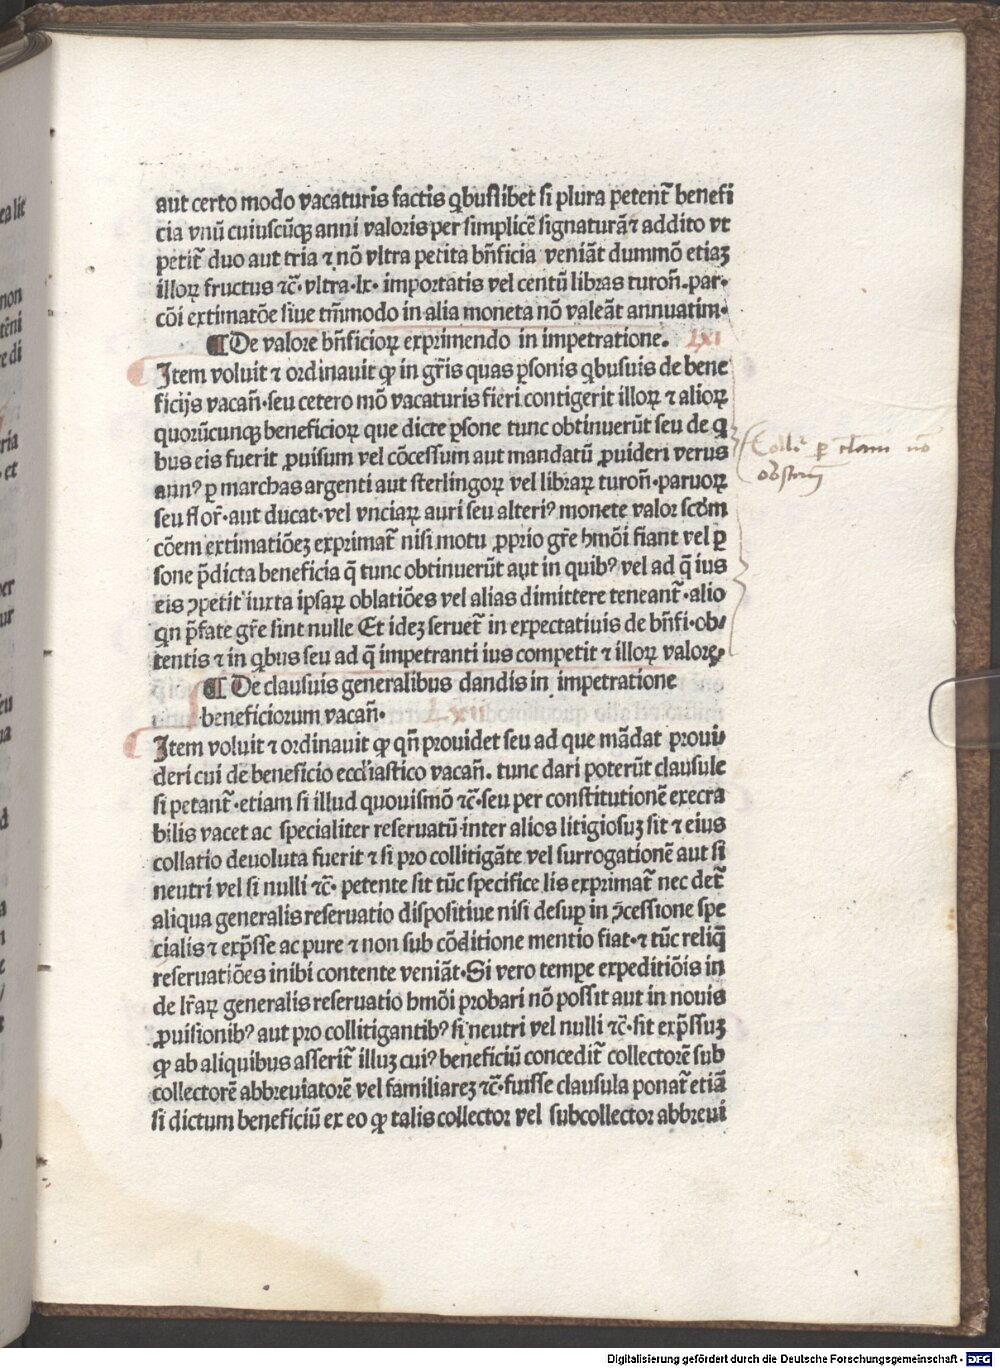 aut certo modo vacaturis factis qͥbuslibet si plura petent᷑ benefi
cia vnū cuiuscūqꝫ anni valoris per simplicē signaturā ⁊ addito vt
petit᷑ duo aut tria ⁊ nō vltra petita bn̄ficia veniāt dummō etiaꝫ
illoꝝ fructus ⁊c̄. vltra.lx. importatis vel centū libras turon̄.par.
cōi extimatōe siue tm̄modo in alia moneta nō valeāt annuatim.
¶ De valore bn̄ficioꝝ exprimendo in impetratione. LXI
Item voluit ⁊ ordinauit ꝙ in gr̄is quas ꝑsonis qͥbusuis de bene
ficijs vacan̄.seu cetero mō vacaturis fieri contigerit illoꝝ ⁊ alioꝝ
quorūcunqꝫ beneficioꝝ que dicte ꝑsone tunc obtinuerūt seu de qͥ
bus eis fuerit ꝓuisum vel cōcessum aut mandatū ꝓuideri verus
annꝰ ꝑ marchas argenti aut sterlingoꝝ vel libraꝝ turon̄.paruoꝝ
seu flor̄.aut ducat.vel vnciaꝝ auri seu alteriꝰ monete valor scd̄m
cōem extimatiōeꝫ exprimat᷑ nisi motu ꝓprio gr̄e hmōi fiant vel ꝑ
sone p̄dicta beneficia q̄ tunc obtinuerūt aut in quibꝰ vel ad q̄ ius
eis ꝯpetit iuxta ipsaꝝ oblatiōes vel alias dimittere teneant᷑.alio
qn̄ p̄fate gr̄e sint nulle Et ideꝫ seruet᷑ in expectatiuis de bn̄fi.ob⸗
tentis ⁊ in qͥbus seu ad q̄ impetranti ius competit ⁊ illoꝝ valore.
¶ De clausuis generalibus dandis in impetratione
beneficiorum vacan̄. LXII
Item voluit ⁊ ordinauit ꝙ qn̄ prouidet seu ad que mādat proui⸗
deri cui de beneficio eccl̄iastico vacan̄. tunc dari poterūt clausule
si petant᷑.etiam si illud quouismō ⁊c̄.seu per constitutionē execra
bilis vacet ac specialiter reseruatū inter alios litigiosuꝫ sit ⁊ eius
collatio deuoluta fuerit ⁊ si pro collitigāte vel surrogationē aut si
neutri vel si nulli ⁊c̄. petente sit tūc specifice lis exprimat᷑ nec det᷑
aliqua generalis reseruatio dispositiue nisi desuꝑ in ꝯcessione spe
cialis ⁊ exp̄sse ac pure ⁊ non sub cōditione mentio fiat.⁊ tūc reliq̄
reseruatiōes inibi contente veniāt.Si vero tempe expeditiōis in
de lr̄aꝝ generalis reseruatio hmōi probari nō possit aut in nouis
ꝓuisionibꝰ aut pro collitigantibꝰ si neutri vel nulli ⁊c̄.sit exp̄ssuꝫ
ꝙ ab aliquibus asserit᷑ illuꝫ cuiꝰ beneficiū concedit᷑ collectorē sub
collectorē abbreuiatorē vel familiareꝫ ⁊c̄.fuisse clausula ponat᷑ etiā
si dictum beneficiū ex eo ꝙ talis collector vel subcollector abbreui
Digitalisierung gefördert durch die Deutsche Forschungsgemeinschaft - DFG